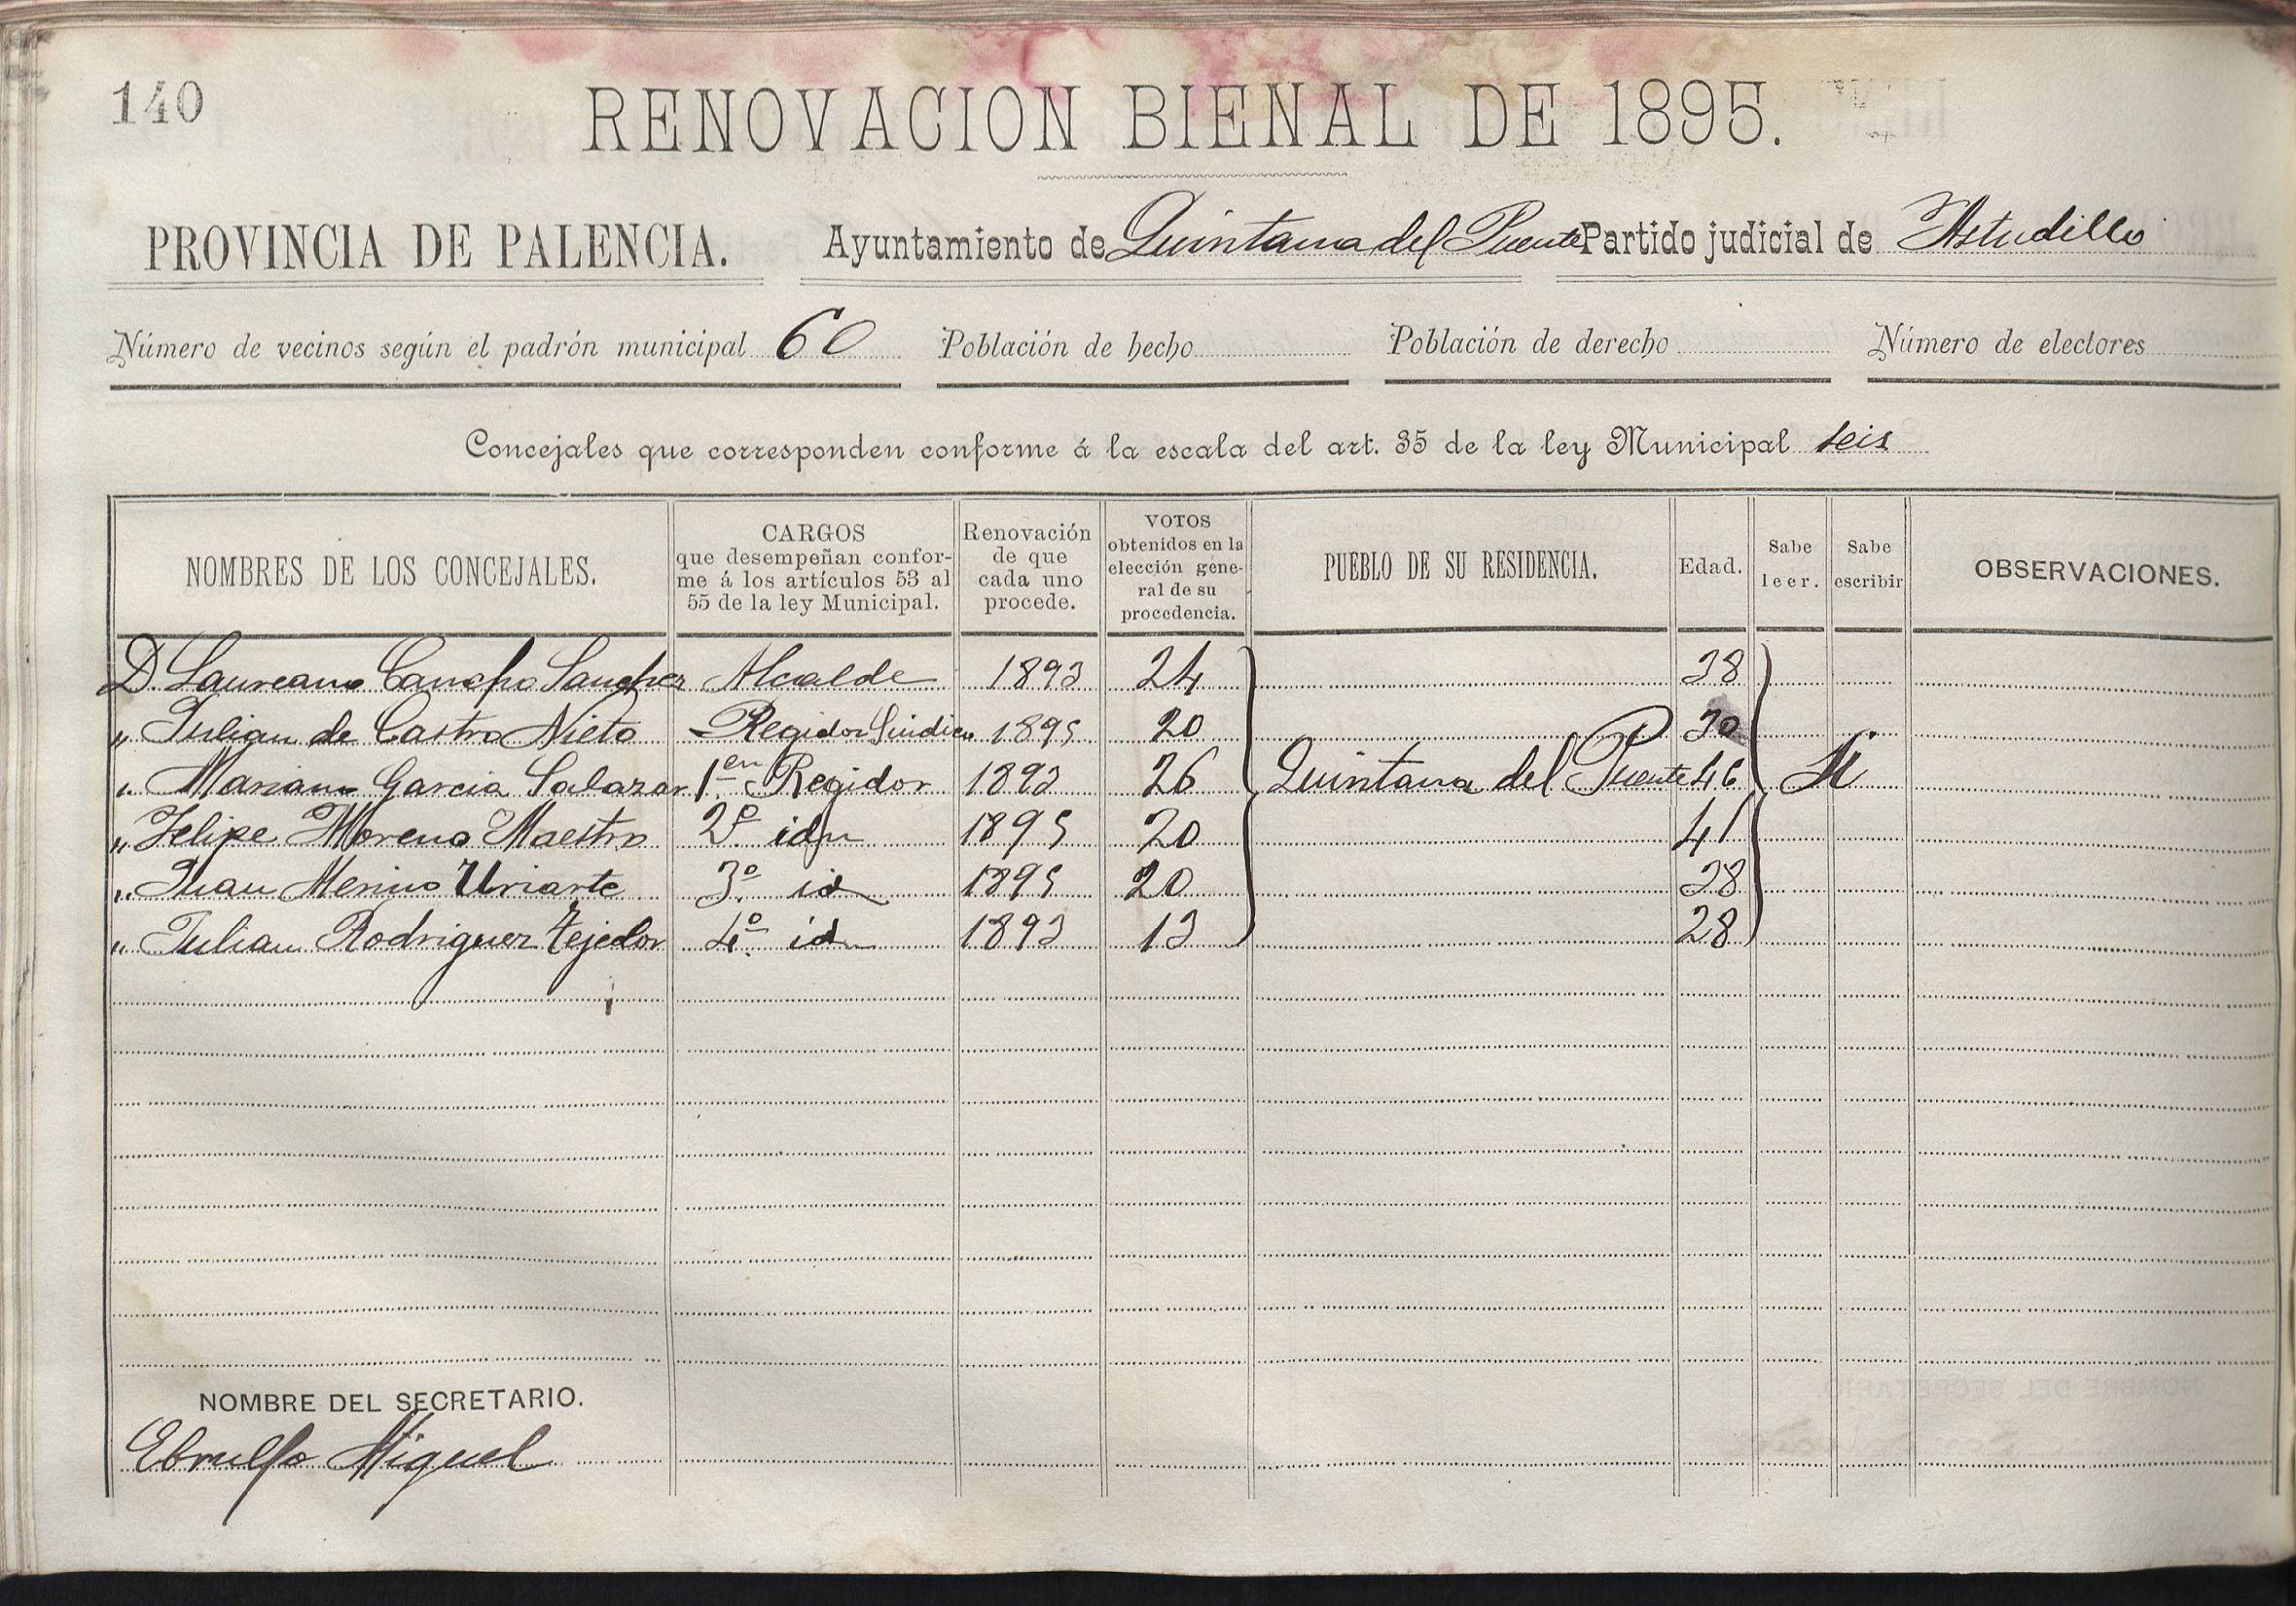 140
RENOVACION BIENAL DE 1895.
PROVINCIA DE PALENCIA. Ayuntamiento de Quintana del Puente Partido judicial de Astudillo
Número de vecinos según el padrón municipal 60 Población de hecho Población de derecho Número de electores
Concejales que corresponden conforme á la escala del art. 35 de la ley Municipal seis
NOMBRES DE LOS CONCEJALES. CARGOS que desempeñan confor-me á los artículos 53 al 55 de la ley Municipal. Renovación de que cada uno procede. VOTOS obtenidos en la elección gene-ral de su procedencia. PUEBLO DE SU RESIDENCIA. Edad. Sabe leer. Sabe escribir OBSERVACIONES.
D. Laureano Cancho Sanchez Alcalde 1893 24 38
„ Julian de Castro Nieto Regidor Sindico 1895 20 30
„ Mariano Garcia Salazar 1er Regidor 1893 26 Quintana del Puente 46 Si
„ Felipe Moreno Maestro 2º idm 1895 20 41
„ Juan Merino Uriarte 3º id 1895 20 38
„ Julian Rodriguez Tejedor 4º id 1893 13 28
NOMBRE DEL SECRETARIO.
Ebrulfo Miguel